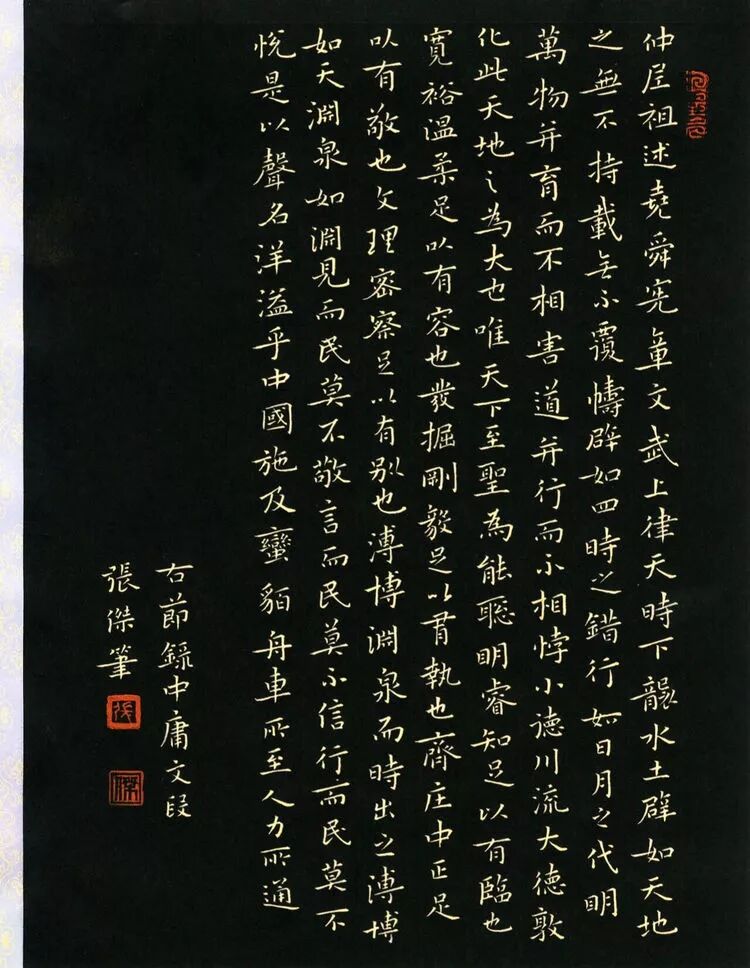 仲尼祖述堯舜憲章文武上律天時下襲水土辟如天地
之無不持載無不覆幬辟如四時之錯行如日月之代明
萬物并育而不相害道并行而不相悖小德川流大德敦
化此天地之為大也唯天下至聖為能聡明睿知足以有臨也
寬裕溫柔足以有容也發掘剛毅足以有執也齊庄中正足
以有敬也文理密察足以有别也溥博淵泉而時出之溥博
如天淵泉如淵見而民莫不敬言而民莫不信行而民莫不
悅是以聲名洋溢乎中國施及蠻貊舟車所至人力所通
右節錄中庸文段
張傑筆
張
傑